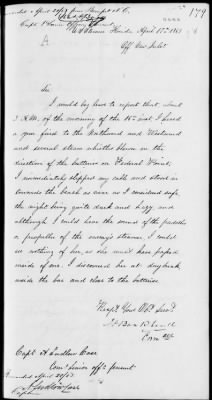 179
A
April 17th 1863
Off New Inlet
Sir
I would beg leave to report that about
3 A.M. of the morning of the 16th inst. I heard
a gun fired to the Northward and Westward
and several steam whistles blown in the
direction of the batteries on Federal Point;
I immediately slipped my cable and stood in
towards the beach as near as I considered safe,
the night being quite dark and hazy and
although I could hear the sound of the paddles
or propeller of the enemy's steamer, I could
see nothing of her, as she must have passed
inside of me. I discovered her at daybreak
inside the bar and close to the batteries
Respy Your Obt Servt
Capt. A Ludlow Case
Comg Senior offr present
Forwarded April 20/63
A Ludlow Case
Captain